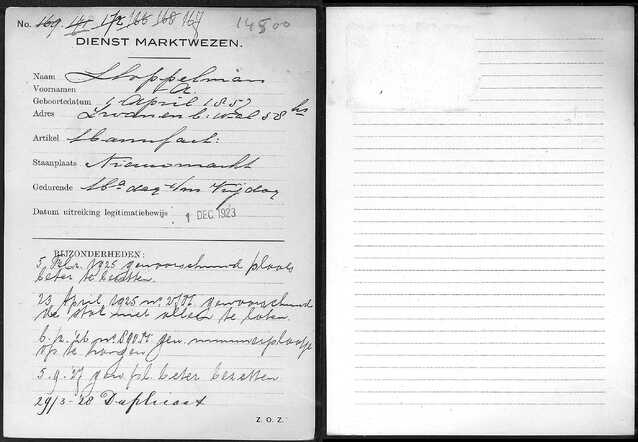 No. 169 171 172 166 168 167 14500
DIENST MARKTWEZEN.
Naam Stoppelman
Voornamen A.
Geboortedatum 1 April 1857
Adres Zwanenb. wal 58 hs
Artikel Manufact:
Staanplaats Nieuwmarkt
Gedurende Ma dag t/m Vrijdag
Datum uitreiking legitimatiebewijs 1 DEC. 1923
BIJZONDERHEDEN:
5 Febr. 1925 gewaarschuwd plaats
beter te bezetten.
23 April 1925 no. gewaarschuwd
de stal niet alleen te laten.
6.12.'26 no. gew. nummerplaatje
op te hangen
5.9.27 gew pl. beter bezetten
29/3-28 Duplicaat
Z. O. Z.